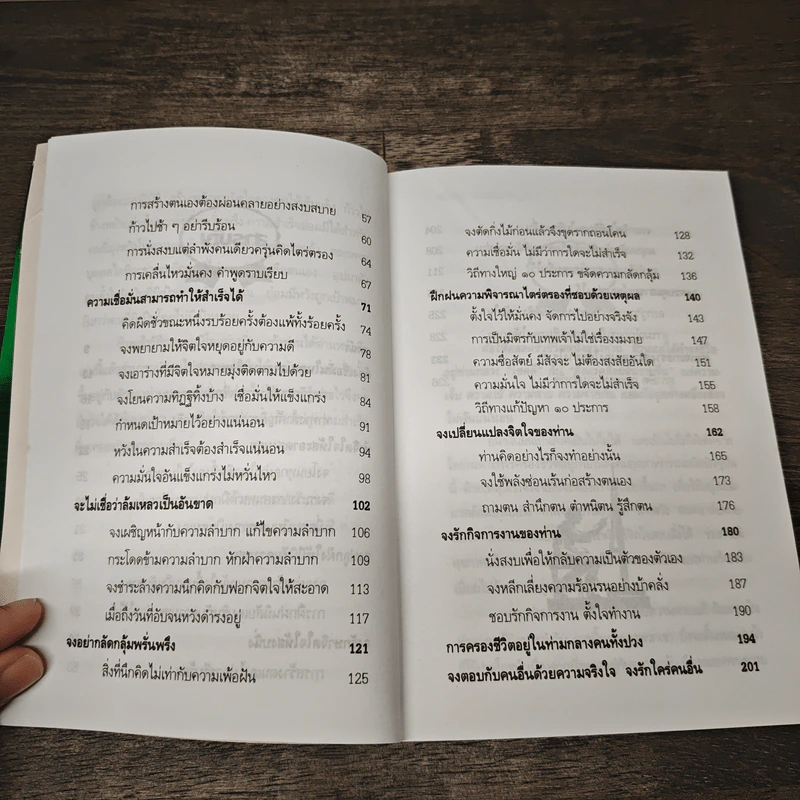 การสร้างตนเองต้องผ่อนคลายอย่างสงบสบาย 57
ก้าวไปช้า ๆ อย่ารีบร้อน 60
การนั่งสงบแต่ลำพังคนเดียวครุ่นคิดไตร่ตรอง 64
การเคลื่อนไหวมั่นคง คำพูดราบเรียบ 67
ความเชื่อมั่นสามารถทำให้สำเร็จได้ 71
คิดผิดชั่วขณะหนึ่งรบร้อยครั้งต้องแพ้ทั้งร้อยครั้ง 74
จงพยายามให้จิตใจหยุดอยู่กับความดี 78
จงเอาร่างที่มีจิตใจหมายมุ่งติดตามไปด้วย 81
จงโยนความทิฏฐิทิ้งบ้าง เชื่อมั่นให้แข็งแกร่ง 84
กำหนดเป้าหมายไว้อย่างแน่นอน 91
หวังในความสำเร็จต้องสำเร็จแน่นอน 94
ความมั่นใจอันแข็งแกร่งไม่หวั่นไหว 98
จะไม่เชื่อว่าล้มเหลวเป็นอันขาด 102
จงเผชิญหน้ากับความลำบาก แก้ไขความลำบาก 106
กระโดดข้ามความลำบาก หักฝ่าความลำบาก 109
จงชำระล้างความนึกคิดกับฟอกจิตใจให้สะอาด 113
เมื่อถึงวันที่อับจนหวังดำรงอยู่ 117
จงอย่ากลัดกลุ้มพรั่นพรึง 121
สิ่งที่นึกคิดไม่เท่ากับความเพ้อฝัน 125
จงตัดกิ่งไม้ก่อนแล้วจึงขุดรากถอนโคน 128
ความเชื่อมั่น ไม่มีว่าการใดจะไม่สำเร็จ 132
วิถีทางใหญ่ ๑๐ ประการ ขจัดความกลัดกลุ้ม 136
ฝึกฝนความพิจารณาไตร่ตรองที่ชอบด้วยเหตุผล 140
ตั้งใจไว้ให้มั่นคง จัดการไปอย่างจริงจัง 143
การเป็นมิตรกับเทพเจ้าไม่ใช่เรื่องงมงาย 147
ความซื่อสัตย์ มีสัจจะ ไม่ต้องสงสัยอันใด 151
ความมั่นใจ ไม่มีว่าการใดจะไม่สำเร็จ 155
วิถีทางแก้ปัญหา ๑๐ ประการ 158
จงเปลี่ยนแปลงจิตใจของท่าน 162
ท่านคิดอย่างไรก็จงทำอย่างนั้น 165
จงใช้พลังซ่อนเร้นก่อสร้างตนเอง 173
ถามตน สำนึกตน ตำหนิตน รู้สึกตน 176
จงรักกิจการงานของท่าน 180
นั่งสงบเพื่อให้กลับความเป็นตัวของตัวเอง 183
จงหลีกเลี่ยงความร้อนรนอย่างบ้าคลั่ง 187
ชอบรักกิจการงาน ตั้งใจทำงาน 190
การครองชีวิตอยู่ในท่ามกลางคนทั้งปวง 194
จงตอบกับคนอื่นด้วยความจริงใจ จงรักใคร่คนอื่น 201